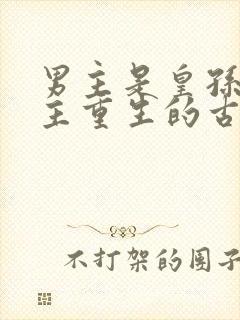 男主是皇孙
主重生的古
不打架的团子